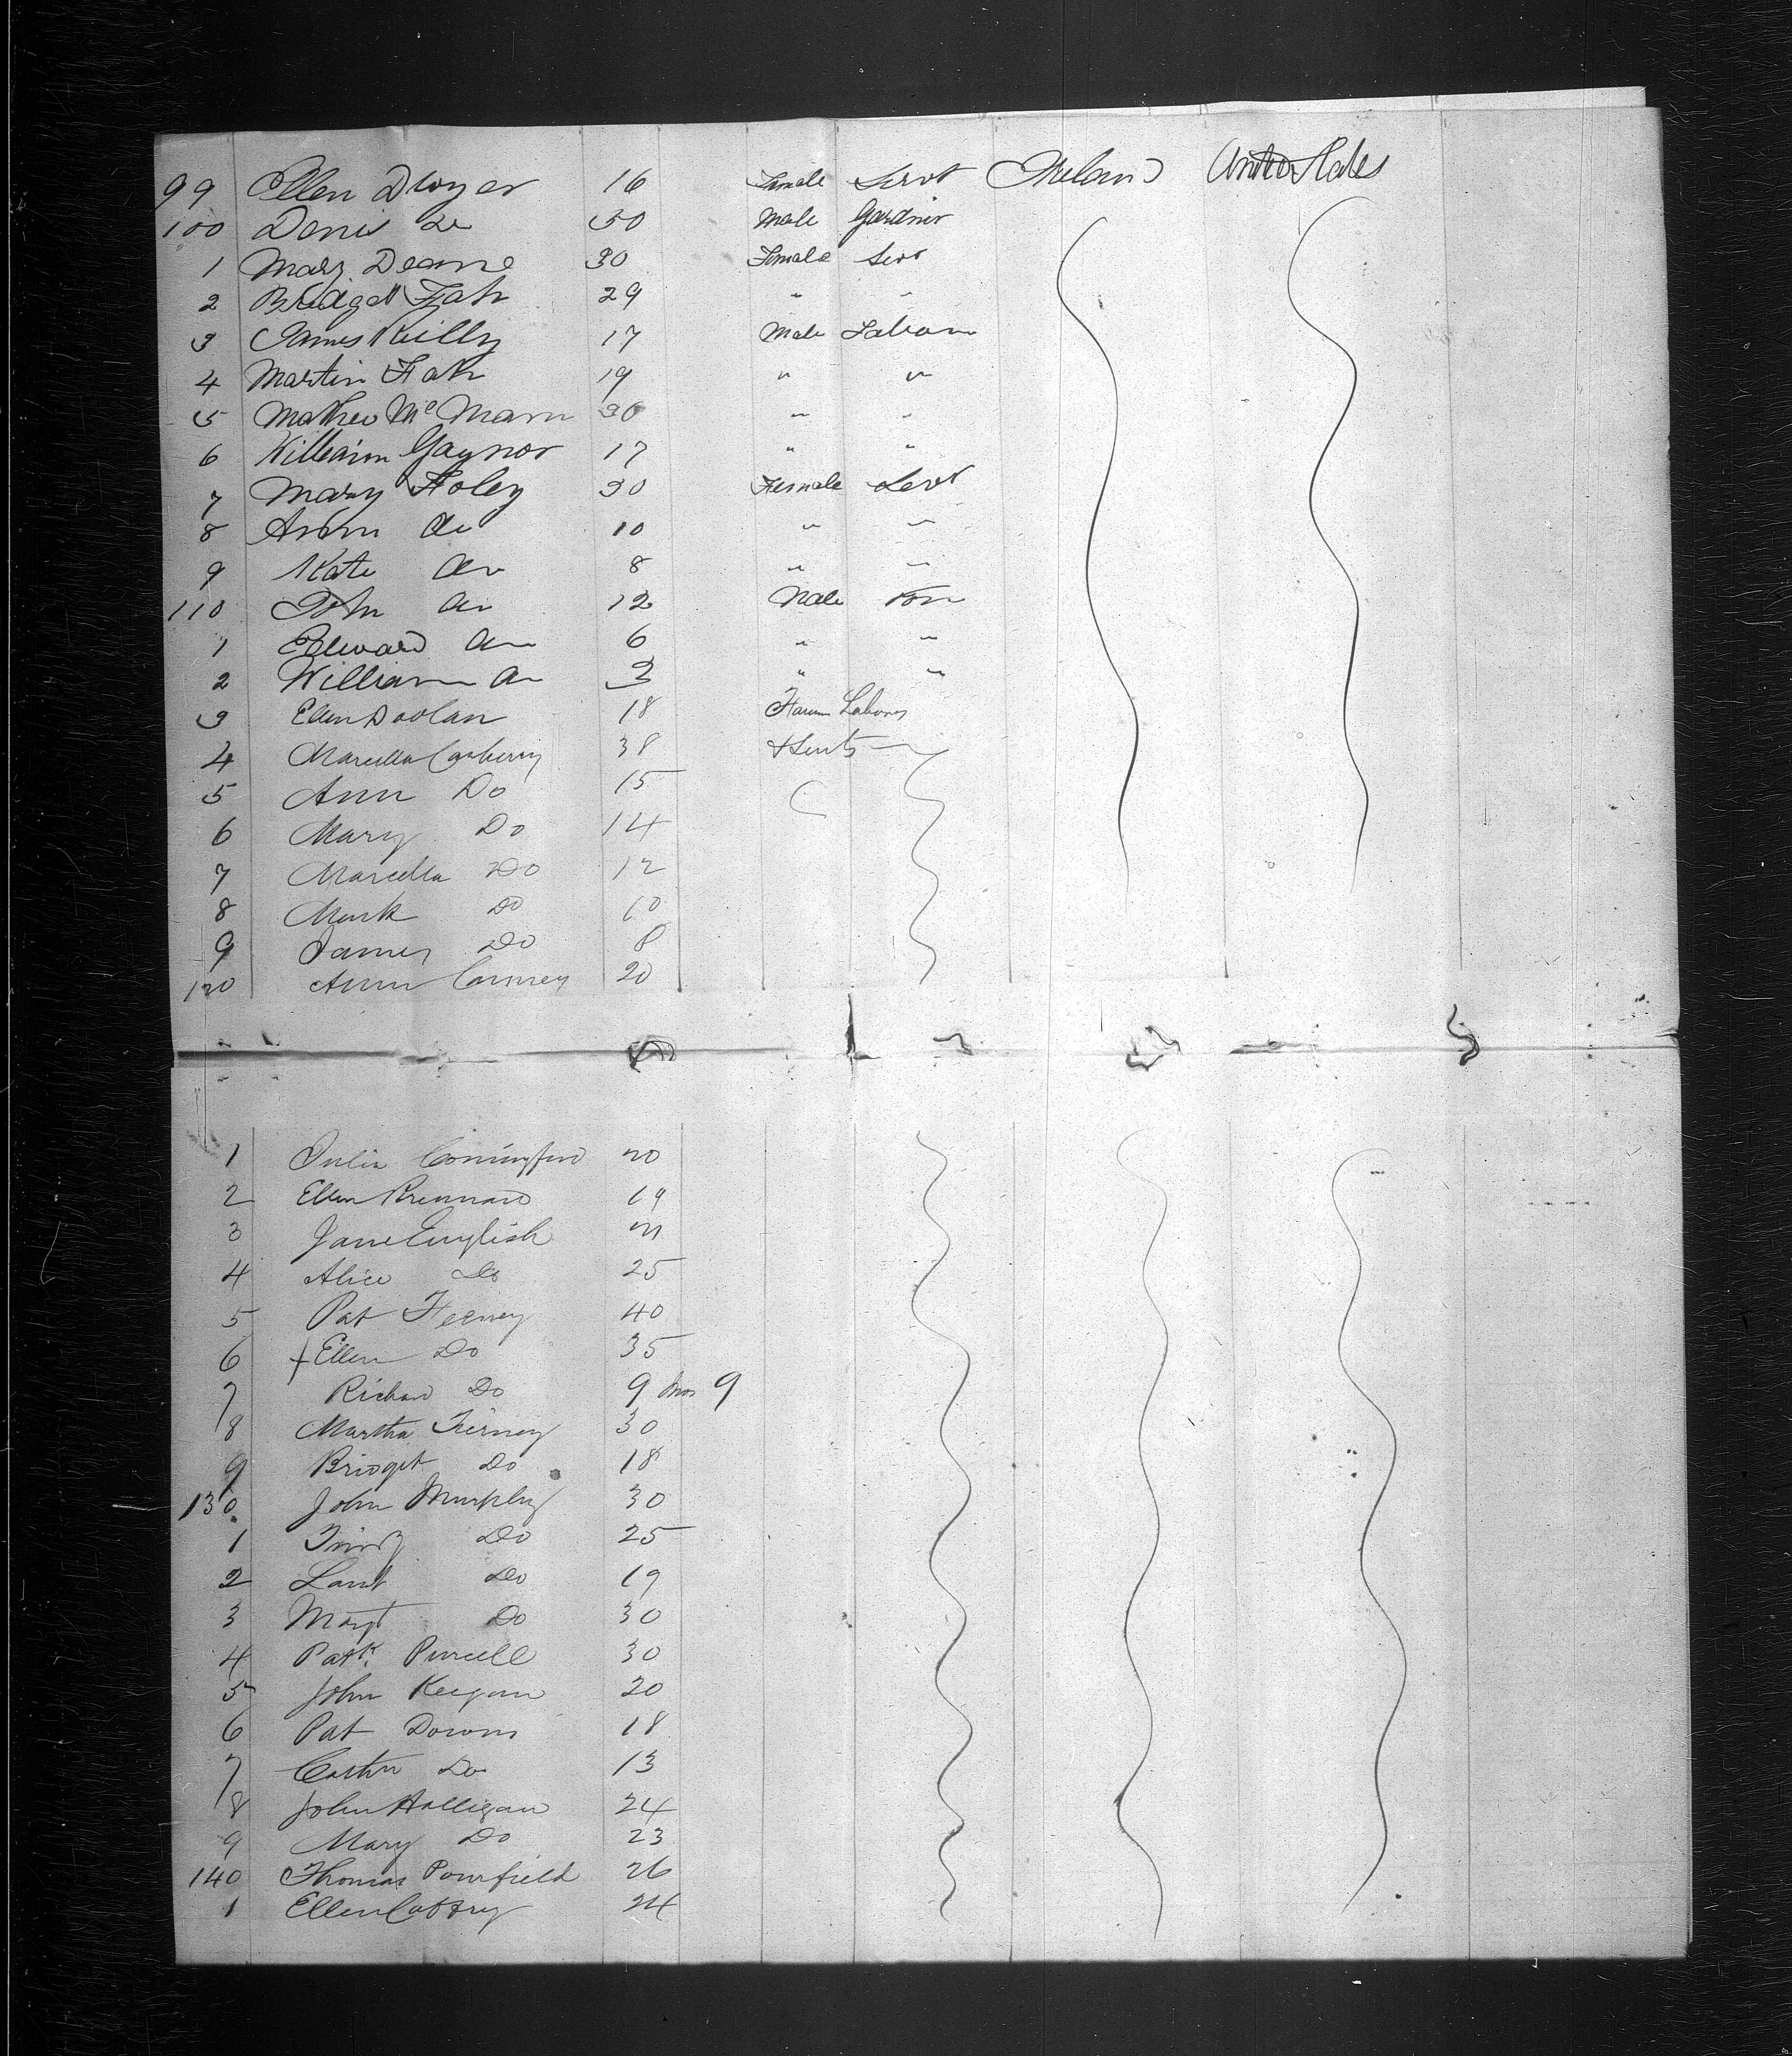 99 Ellen Dwyer 16 Female Servt Ireland United States
100 Denis Do 50 Male Gardner
1 Mary Deane 30 Female Servt
2 Bridget 29 " "
3 James Reilly 17 Male Labour
4 Martin 19 " "
5 Mathew McMann 30 " "
6 William Gaynor 17 " "
7 Mary Foley 30 Female Servt
8 Ann do 10 " "
9 Kate do 8 " "
110 John do 12 Male
1 Edward do 6 " "
2 William do 3 " "
3 Ellen Doolan 18 Farm Labores
4 Marcella Carberry 38 & Servts
5 Ann Do 15
6 Mary Do 14
7 Marcella Do 12
8 Mark Do 10
9 James Do 8
120 Ann 20
1 Julia 20
2 Ellen 19
3 Jane English
4 Alice Do 25
5 Pat Feeney 40
6 + Ellen Do 35
7 Richard Do 9 Mos 9
8 Martha Tierney 30
9 Bridget Do 18
130 John Murphy 30
1 Do 25
2 Do 19
3 Margt Do 30
4 Patk. Purcell 30
5 John Keegan 20
6 Pat Downs 18
7 Do 13
8 John Halligan 24
9 Mary Do 23
140 Thomas 26
1 Ellen Caffry 24